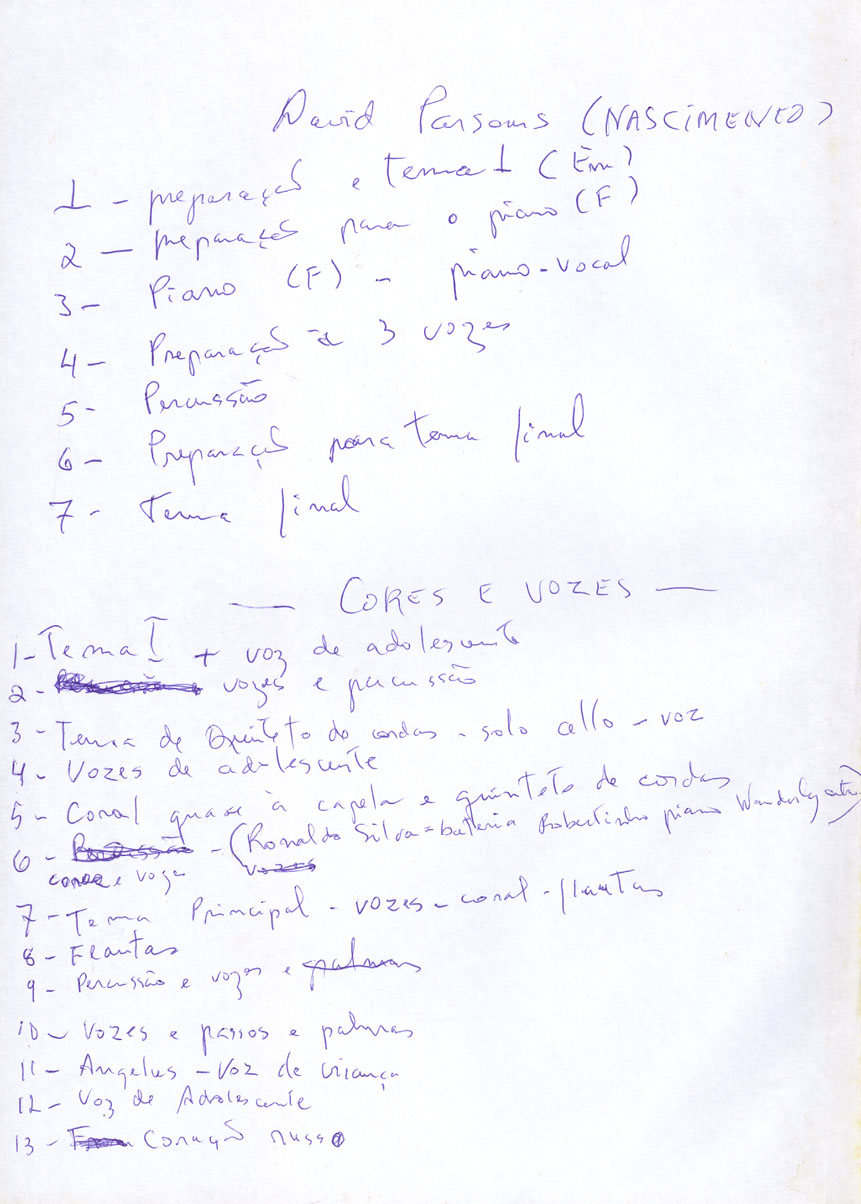 David Parsons (NASCIMENTO)
1 - preparação e tema 1 (Em)
2 - preparação para o piano (F)
3 - Piano (F) - piano-vocal
4 - Preparação à 3 vozes
5 - Percussão
6 - Preparação para tema final
7 - Tema final
— CORES E VOZES —
1 - Tema I + voz de adolescente
2 - vozes e percussão
3 - Tema de Quinteto de cordas - solo cello - voz
4 - Vozes de adolescente
5 - Coral quase à capela e quinteto de cordas
6 - Percussão - (Ronaldo Silva = bateria Robertinho piano Wanderley
e voz vozes
7 - Tema Principal - vozes - coral - flautas
8 - Flautas
9 - Percussão e vozes e palmas
10 - Vozes e passos e palmas
11 - Angelus - Voz de criança
12 - Voz de Adolescente
13 - Coração russo